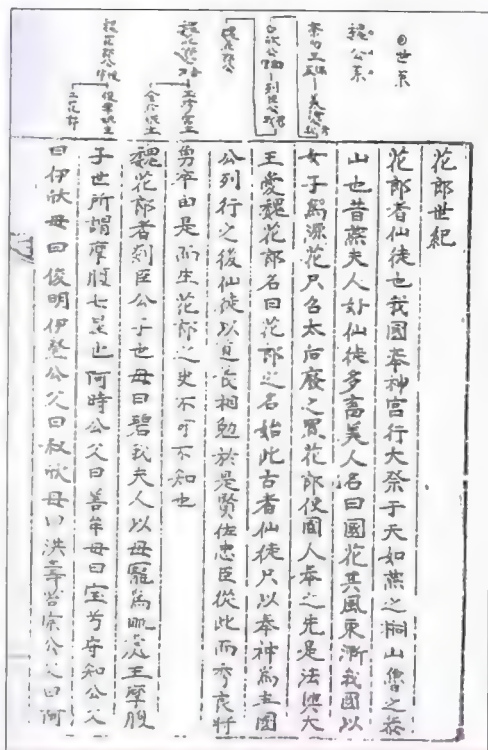 ◎世系
魏公系
魏花郎公
二花郎
花郎世紀
花郎者仙徒也我國奉神宮行大祭于天如燕之桐山魯之泰
山也昔燕夫人好仙徒多畜美人名曰國花其風東漸我國以
女子爲源花只召太后廢之置花郎使國人奉之先是法興大
王愛魏花郎名曰花郎之名始此古者仙徒只以奉神爲主國
公列行之後仙徒以道義相勉於是賢佐忠臣從此而秀良將
勇卒由是而生花郎之史不可不知也
魏花郎者剡臣公子也母曰碧我夫人以母寵爲毗處王摩腹
子世所謂摩腹七星也阿時公父曰善牟母曰宝兮守知公父
曰伊欣母曰俊明伊登公父曰叔欣母曰洪壽苔宗公父曰阿